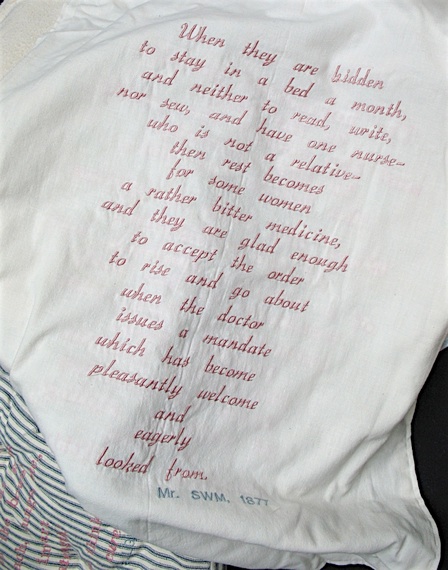 When they are bidden
to stay in a bed a month,
and neither to read, write,
nor sew, and have one nurse-
who is not a relative-
then rest becomes
for some women
a rather bitter medicine,
and they are glad enough
to accept the order
to rise and go about
when the doctor
issues a mandate
which has become
pleasantly welcome
and
eagerly
looked from.
Mr. SWM. 1877